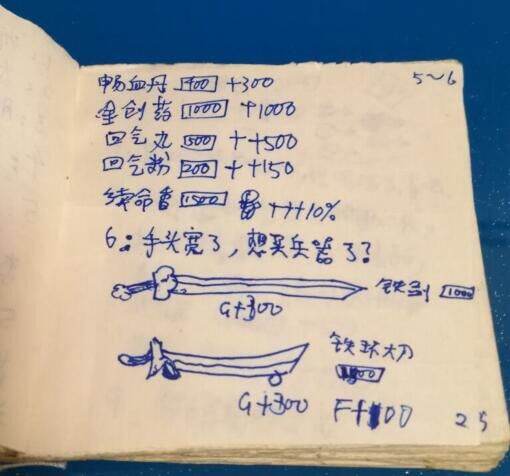 5~6
畅血丹 400 +300
金创药 1000 +1000
回气丸 500 ++500
回气粉 200 ++150
续命膏 1500 +++10%
6:手头宽了,想买兵器了?
铁剑 1000
G+300
铁环大刀
G+300 F+100
25